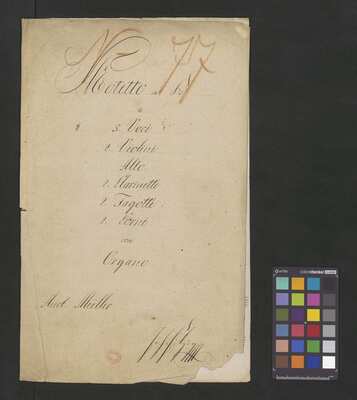 77
Motetto
a
3. Voci
2. Violini
Alto
2. Clarinetti
2. Fagotti
2. Corni
con
Organo
Aut. Müller